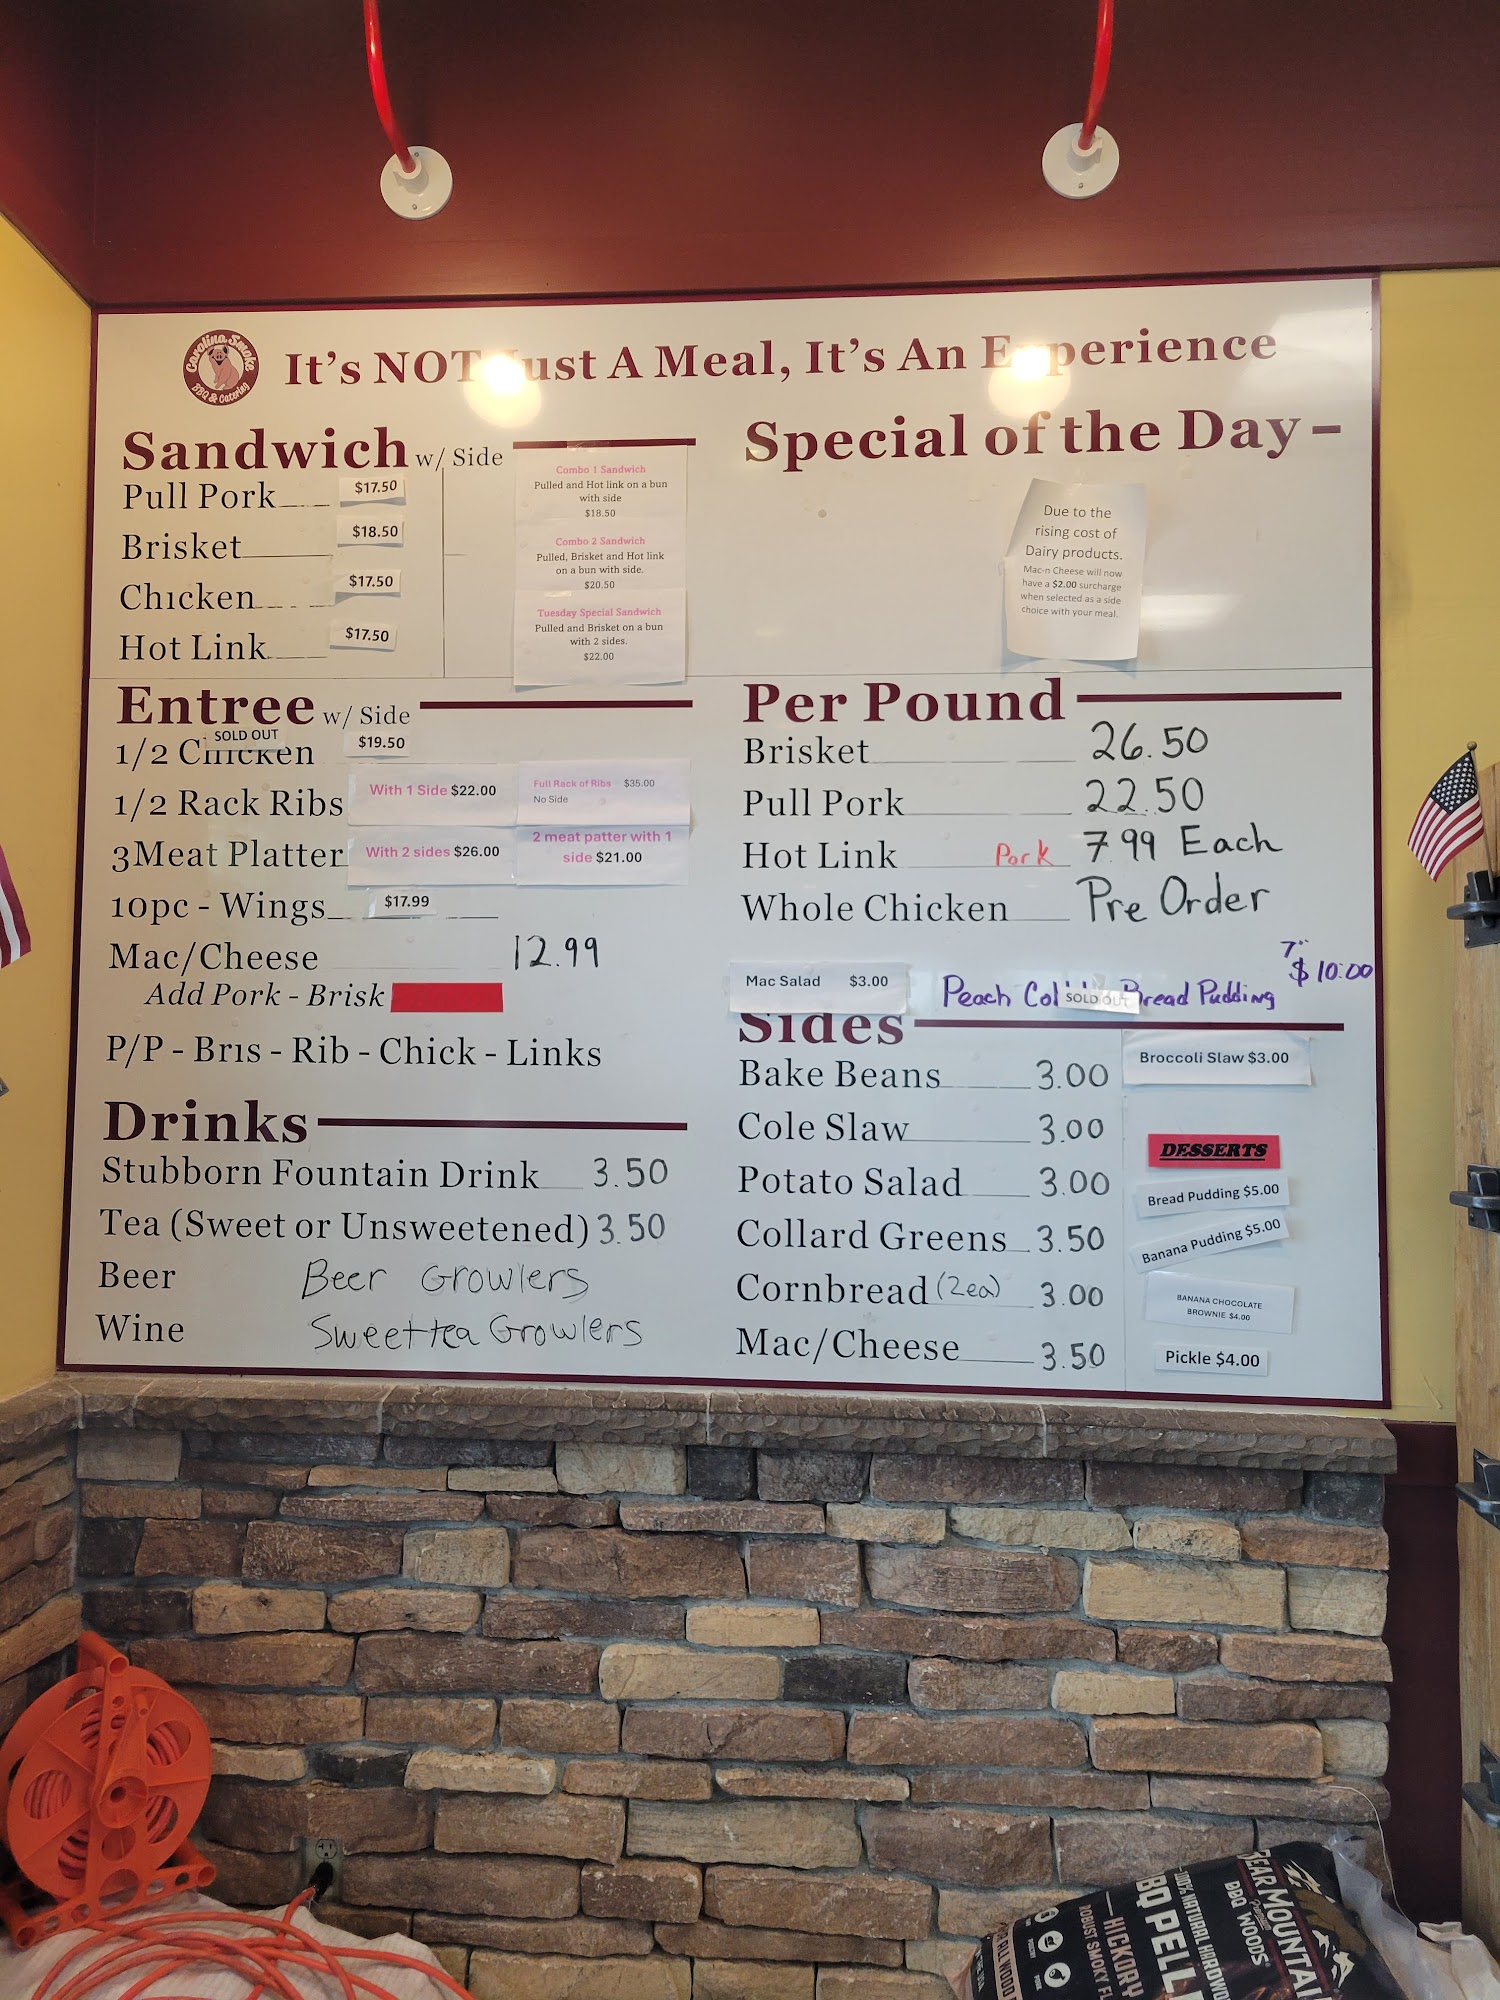 Carolina Smoke
BBQ & Catering
It's NOT Just A Meal, It's An Experience
Sandwich w/ Side
Pull Pork $17.50
Brisket $18.50
Chicken $17.50
Hot Link $17.50
Combo 1 Sandwich
Pulled and Hot link on a bun
with side
$18.50
Combo 2 Sandwich
Pulled, Brisket and Hot link
on a bun with side.
$20.50
Tuesday Special Sandwich
Pulled and Brisket on a bun
with 2 sides.
$22.00
Special of the Day -
Due to the
rising cost of
Dairy products.
Mac-n Cheese will now
have a $2.00 surcharge
when selected as a side
choice with your meal.
Entree w/ Side
SOLD OUT
1/2 Chicken $19.50
1/2 Rack Ribs With 1 Side $22.00
Full Rack of Ribs $35.00
No Side
3Meat Platter With 2 sides $26.00
2 meat patter with 1
side $21.00
10pc - Wings $17.99
Mac/Cheese 12.99
Add Pork - Brisk
P/P - Bris - Rib - Chick - Links
Per Pound
Brisket 26.50
Pull Pork 22.50
Hot Link Pork 7.99 Each
Whole Chicken Pre Order
Mac Salad $3.00
Peach SOLD OUT Bread Pudding 7" $10.00
Drinks
Stubborn Fountain Drink 3.50
Tea (Sweet or Unsweetened) 3.50
Beer Beer Growlers
Wine Sweet tea Growlers
Sides
Bake Beans 3.00
Cole Slaw 3.00
Potato Salad 3.00
Collard Greens 3.50
Cornbread (2ea) 3.00
Mac/Cheese 3.50
Broccoli Slaw $3.00
DESSERTS
Bread Pudding $5.00
Banana Pudding $5.00
BANANA CHOCOLATE
BROWNIE $4.00
Pickle $4.00
BEAR MOUNTAIN
Premium
BBQ WOODS
100% NATURAL HARDWO
BQ PELL
HICKORY
ROBUST SMOKY FL